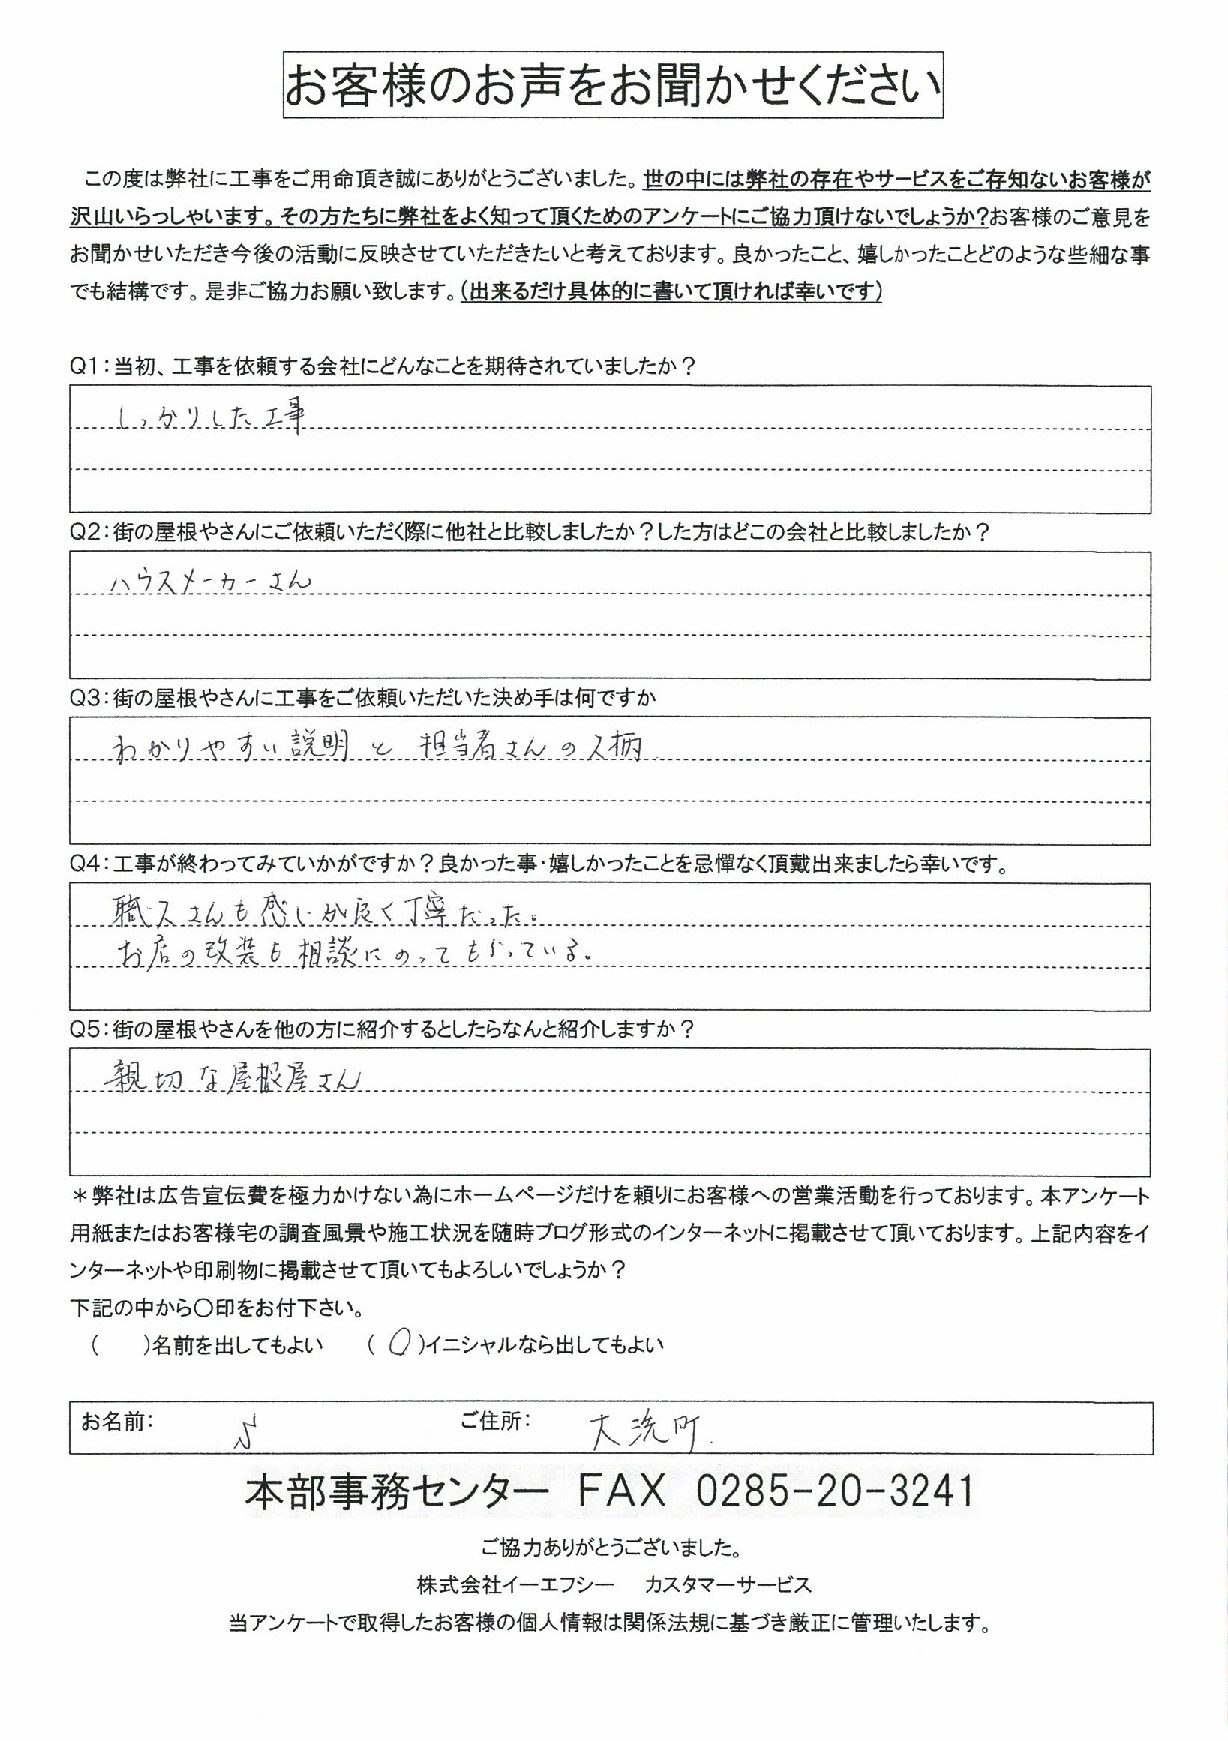 お客様のお声をお聞かせください
この度は弊社に工事をご用命頂き誠にありがとうございました。世の中には弊社の存在やサービスをご存知ないお客様が
沢山いらっしゃいます。その方たちに弊社をよく知って頂くためのアンケートにご協力頂けないでしょうか?お客様のご意見を
お聞かせいただき今後の活動に反映させていただきたいと考えております。良かったこと、嬉しかったことどのような些細な事
でも結構です。是非ご協力お願い致します。(出来るだけ具体的に書いて頂ければ幸いです)
Q1:当初、工事を依頼する会社にどんなことを期待されていましたか?
しっかりした工事
Q2:街の屋根やさんにご依頼いただく際に他社と比較しましたか?した方はどこの会社と比較しましたか?
ハウスメーカーさん
Q3:街の屋根やさんに工事をご依頼いただいた決め手は何ですか
わかりやすい説明と担当者さんの人柄
Q4:工事が終わってみていかがですか?良かった事・嬉しかったことを忌憚なく頂戴出来ましたら幸いです。
職人さんも感じが良く丁寧だった。
お店の改装も相談にのってもらっている。
Q5:街の屋根やさんを他の方に紹介するとしたらなんと紹介しますか?
親切な屋根屋さん
*弊社は広告宣伝費を極力かけない為にホームページだけを頼りにお客様への営業活動を行っております。本アンケート
用紙またはお客様宅の調査風景や施工状況を随時ブログ形式のインターネットに掲載させて頂いております。上記内容をイ
ンターネットや印刷物に掲載させて頂いてもよろしいでしょうか?
下記の中から〇印をお付下さい。
(　)名前を出してもよい　(〇)イニシャルなら出してもよい
お名前:　ご住所:　大洗町
本部事務センター　FAX　0285-20-3241
ご協力ありがとうございました。
株式会社イーエフシー　カスタマーサービス
当アンケートで取得したお客様の個人情報は関係法規に基づき厳正に管理いたします。